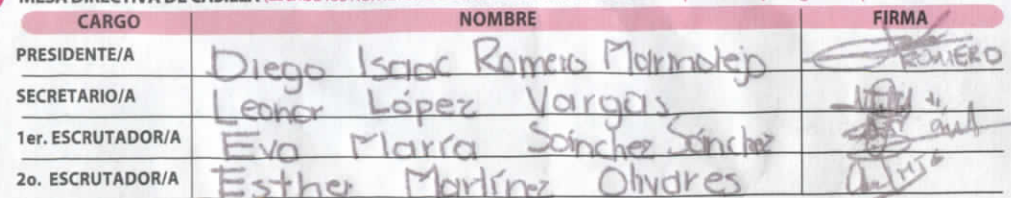 MESA DIRECTIVA DE CASILLA
CARGO NOMBRE FIRMA
PRESIDENTE/A Diego Isaac Romero Marmolejo ROMERO
SECRETARIO/A Leonor López Vargas
1er. ESCRUTADOR/A Eva María Sánchez Sánchez
2o. ESCRUTADOR/A Esther Martínez Olivares